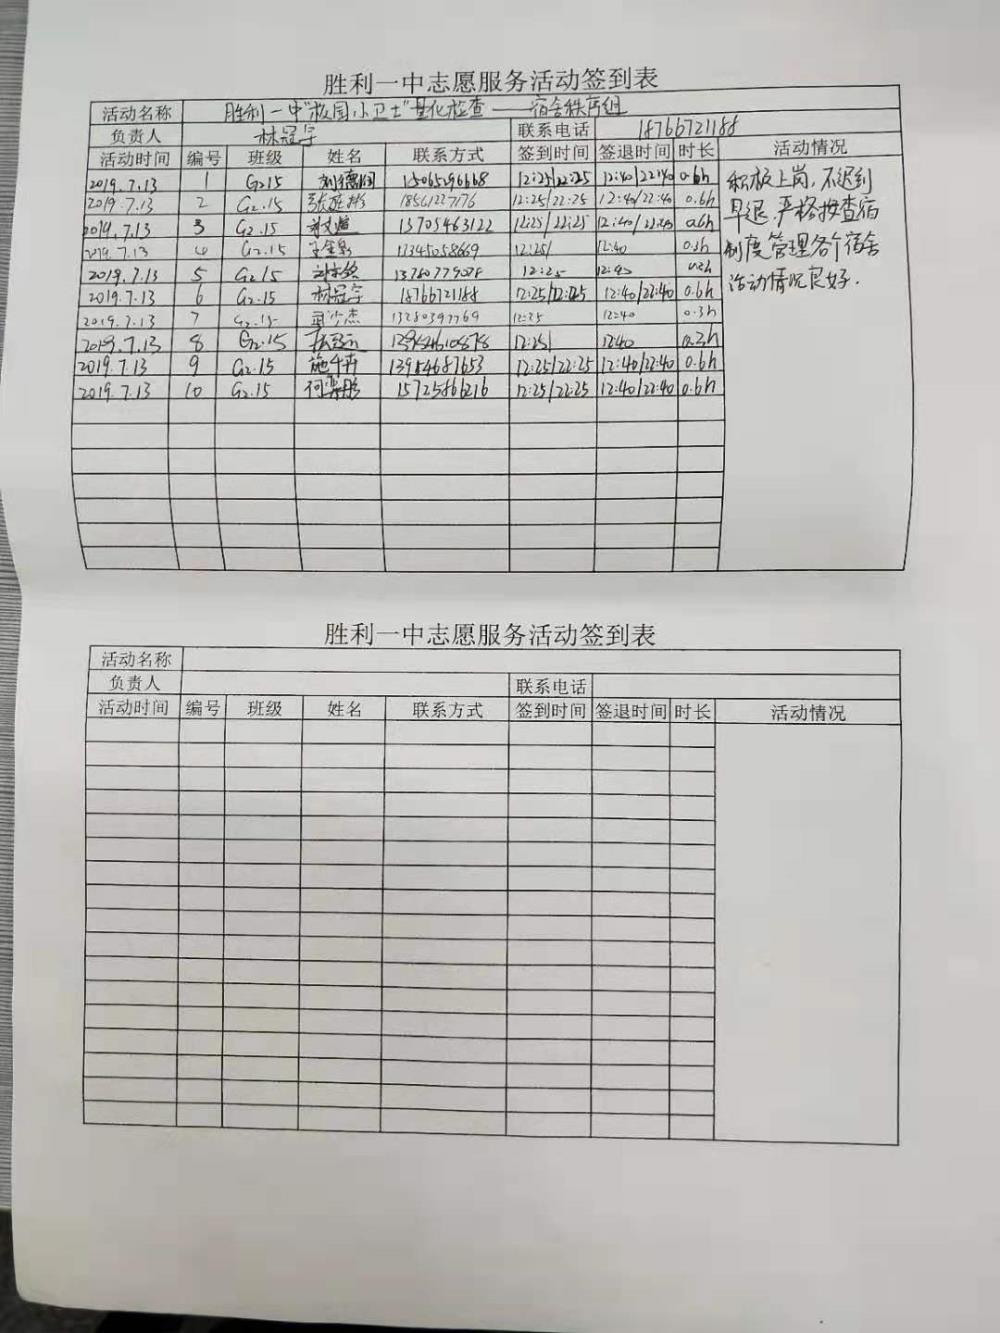 胜利一中志愿服务活动签到表
活动名称 胜利一中"校园小卫士"量化检查——宿舍秩序组
负责人 林冠宇 联系电话 18766721188
活动时间 编号 班级 姓名 联系方式 签到时间 签退时间 时长 活动情况
2019.7.13 1 G2.15 刘德润 15065296668 12:25/22:25 12:40/22:40 0.6h
2019.7.13 2 G2.15 18561227176 12:25/22:25 12:40/22:40 0.6h
2019.7.13 3 G2.15 13705463122 12:25/22:25 12:40/22:40 0.6h
2019.7.13 G2.15 13345058669 12:25/ 12:40 0.3h
2019.7.13 5 G2.15 12:25 12:40 0.3h
2019.7.13 6 G2.15 林冠宇 18766721188 12:25/ 12:40/22:40 0.6h
2019.7.13 7 G2.15 武少杰 13280397769 12:25 12:40 0.3h
2019.7.13 8 G2.15 12:25/ 12:40 0.3h
2019.7.13 9 G2.15 施午卉 13954687653 12:25/22:25 12:40/22:40 0.6h
2019.7.13 10 G2.15 15725866216 12:25/22:25 12:40/22:40 0.6h
积极上岗,不迟到
早退,严格按查宿
制度管理各个宿舍
活动情况良好.
胜利一中志愿服务活动签到表
活动名称
负责人 联系电话
活动时间 编号 班级 姓名 联系方式 签到时间 签退时间 时长 活动情况